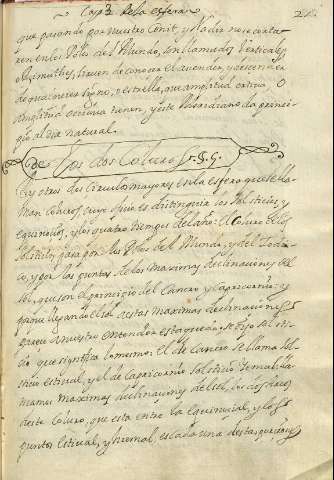 Cap. 2. De la esfera.
que pasando por nuestro Cenit, y Nadir no se corta
ren en los Polos del Mundo, son llamados Verticales
o Azimuthes, sirven de conocer el ascender, y descender
de qualquier signo, o estrella, que amplitud ortiva, o
Amplitud occidua tienen, y este Meridiano da princi
pio al dia natural.
De los dos Coluros. §.
Ay otros dos Circulos mayores en la esfera que se lla
man Coluros, cuyo oficio es distinguir los solsticios, y
equinocios, y los quatro tiempos del año: el Coluro de los
solsticios pasa por los Polos del Mundo, y del Zodia
co, y por los puntos de las maximas declinaciones del
sol, que son el principio del Cancro, y Capricornio: y
porque llegando el sol a estas maximas declinaciones
parece a nuestro entender esta quedo: se dijo solsti
cio, que significa lo mismo: el de Cancro se llama sols
ticio estival, y el de Capricornio solsticio Yemal, lla
manse maximas declinaciones del sol, los dos arcos
deste Coluro, que esta entre la Equinocial, y los
puntos estival, y hiemal, es cada una destas